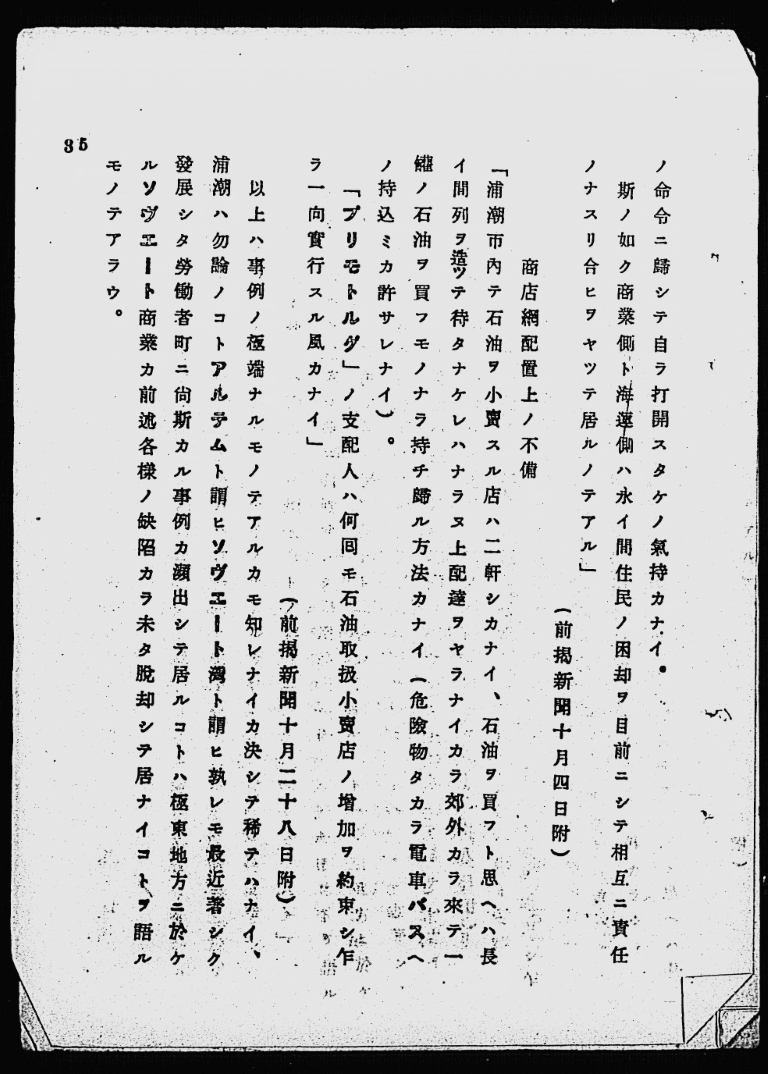 ノ命令ニ歸シテ自ラ打開スタケノ氣持カナイ。
斯ノ如ク商業側ト海運側ハ永イ間住民ノ困却ヲ目前ニシテ相互ニ責任
ノナスリ合ヒヲヤツテ居ルノテアル」
(前揭新聞十月四日附)
商店網配置上ノ不備
「浦潮市內テ石油ヲ小賣スル店ハ二軒シカナイ、石油ヲ買フト思ヘハ長
イ間列ヲ造ツテ待タナケレハナラヌ上配達ヲヤラナイカラ郊外カラ來テ一
罐ノ石油ヲ買フモノナラ持チ歸ル方法カナイ(危險物タカラ電車バスヘ
ノ持込ミカ許サレナイ)。
「プリモトルグ」ノ支配人ハ何回モ石油取扱小賣店ノ增加ヲ約束シ乍
ラ一向實行スル風カナイ」
(前揭新聞十月二十八日附)
以上ハ事例ノ極端ナルモノテアルカモ知レナイカ決シテ稀テハナイ、
浦潮ハ勿論ノコトアルテムト謂ヒソヴエート灣ト謂ヒ孰レモ最近著シク
發展シタ勞働者町ニ尙斯カル事例カ瀕出シテ居ルコトハ極東地方ニ於ケ
ルソヴエート商業カ前述各樣ノ缺陷カラ未タ脫却シテ居ナイコトヲ語ル
モノテアラウ。
35